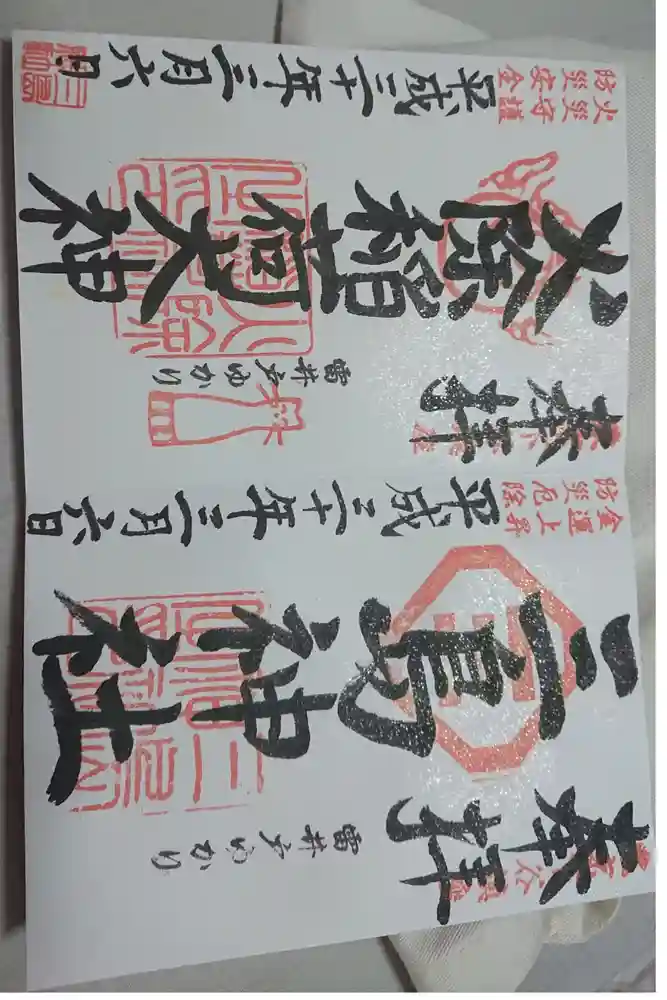 奉拝
雷井戸ゆかり
三島神社
平成三十年三月六日
金運上昇
防災厄除
奉拝
雷井戸ゆかり
火除稲荷大神
平成三十年三月六日
防災安全